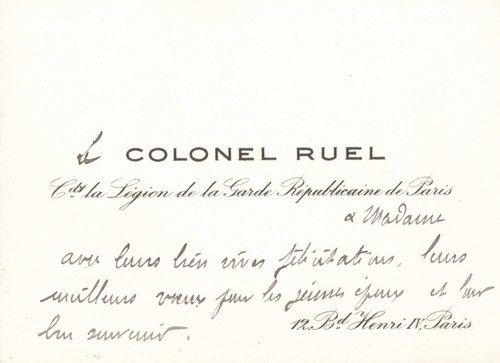 Le COLONEL RUEL
Cdt. la Légion de la Garde Républicaine de Paris
& Madame
avec leurs bien vives félicitations, leurs
meilleurs vœux pour les jeunes époux et leur
bon souvenir.
12. Bd. Henri IV. Paris